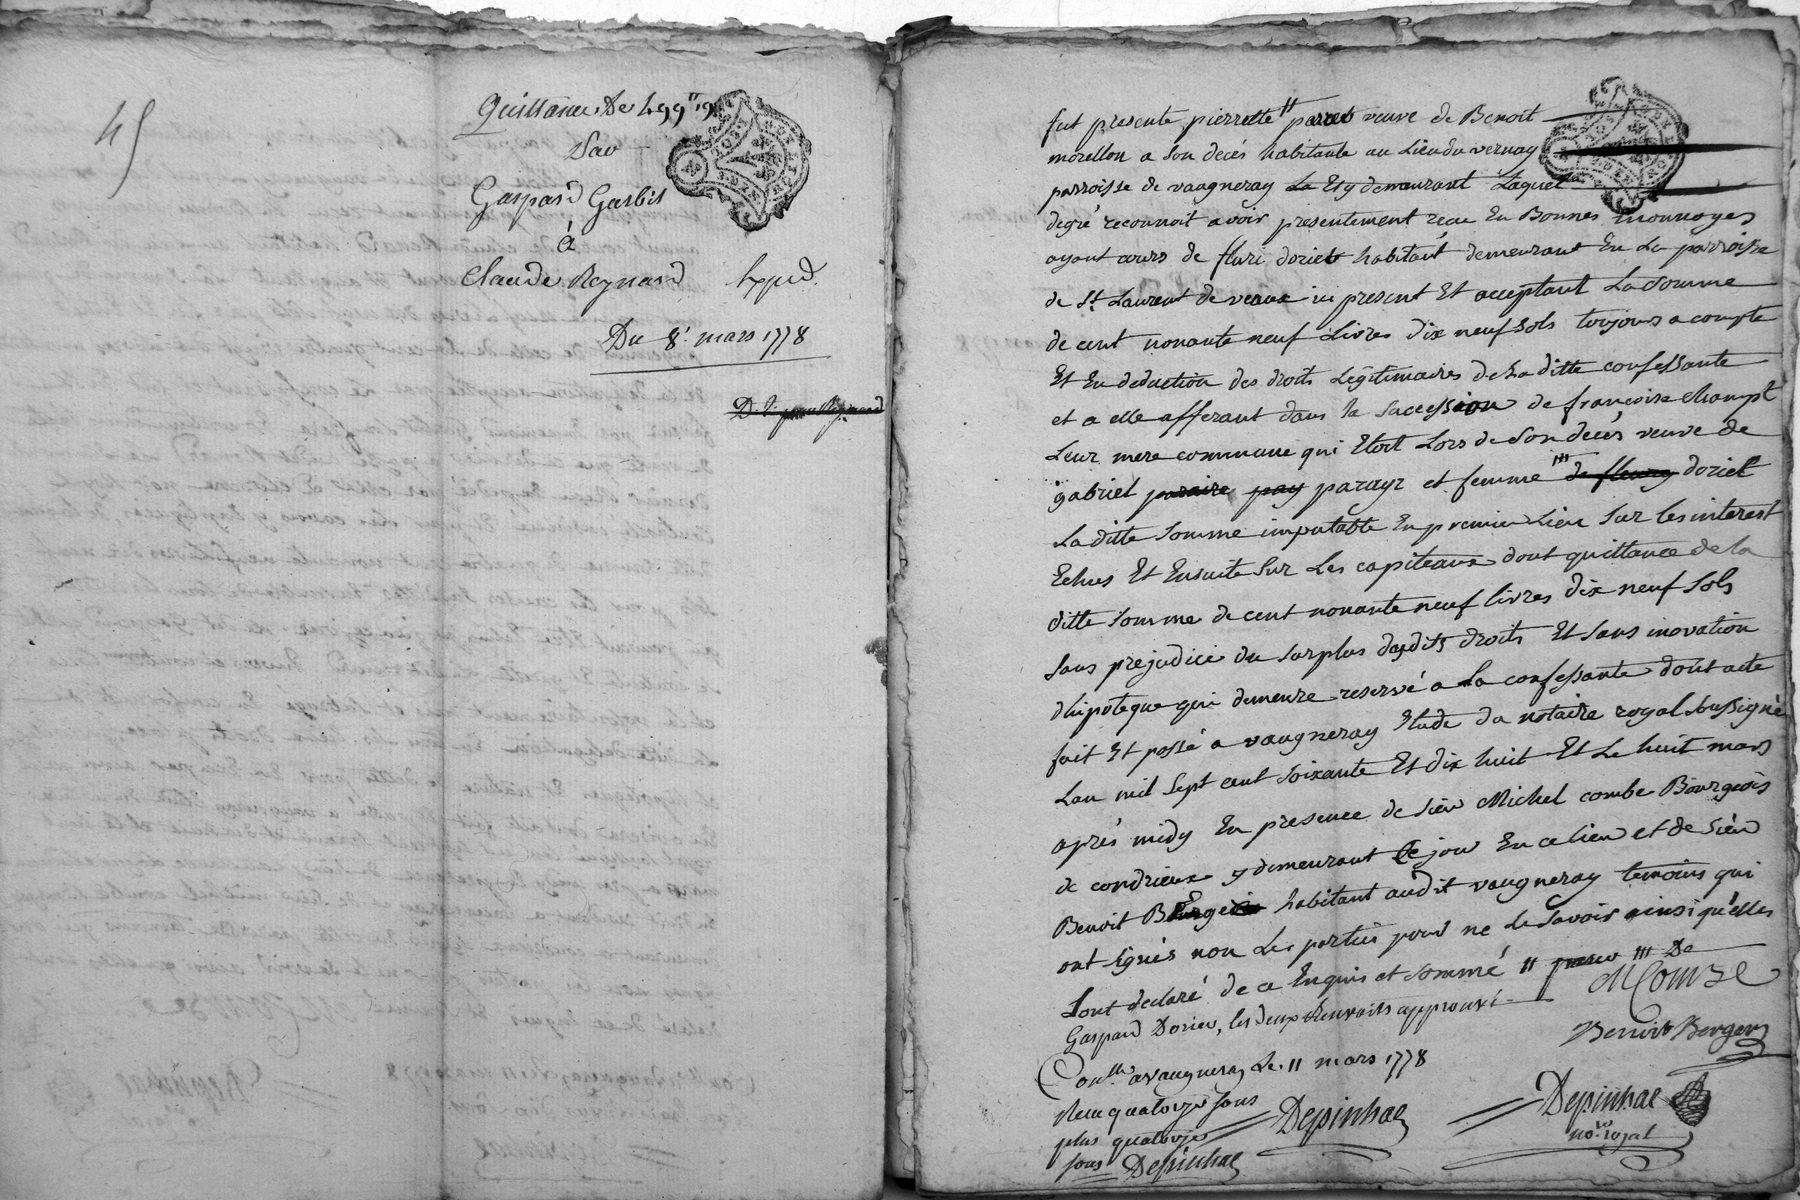 45
Quittance De 499ˡᵗ 19
Par
Gaspard Garbit
à
Claude Reynard Expéd.
Du 8ᵉ mars 1778
fut presente pierrette " veuve de Benoit
morellon a son decés habitante au Lieu du vernay
parroisse de vaugneray La Et y demeurant Laquelle
degré reconnoit avoir presentement recu En Bonnes monnoyes
ayant cours de fluri doriet habitant demeurant En La parroisse
de St Laurent de veaux ici present Et acceptant La Somme
de cent nonante neuf Livres dix neuf Sols toujours a compte
Et En deduction des droits Legitimaires de La ditte confessante
et a elle afferant dans la Succession de francoise champt
Leur mere commune qui Etoit Lors de Son decés veuve de
gabriel paraire pay parayr et femme ''' de fleury doriet
La ditte Somme imputable En premier Lieu Sur les interest
Echus Et Ensuite Sur Les capiteaux dont quittance de la
ditte Somme de cent nonante neuf livres dix neuf Sols
Sans prejudice du surplus desdits droits Et Sans inovation
dhipoteque qui demeure reservé a La confessante dont acte
fait Et passé a vaugneray Etude du notaire royal Soussigné
Lan mil Sept cent Soixante Et dix huit Et Le huit mars
après midy En presence de Sieur Michel combe Bourgeois
de condrieux y demeurant Ce jour En ce lieu et de Sieur
Benoit habitant audit vaugneray temoins qui
ont Signés non Les parties pour ne Le Savoir ainsi qu'elles
Sont declaré de ce Enquis et Sommé " ''' De
Gaspard Dorier, les deux Renvoits approuvé
MCombe
Benoit Berger
Conllé a vaugneray Le 11 mars 1778
Recu quatorze Sous
plus quatorze
Sous Depinhac
Depinhac
Depinhac
nore royal